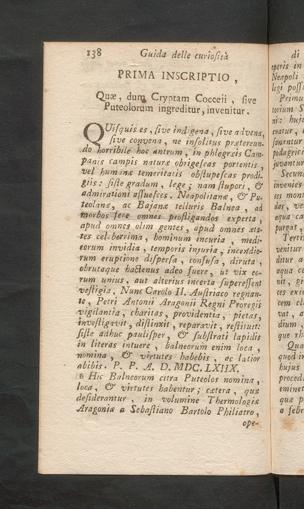 138 Guida delle curiosità
PRIMA INSCRIPTIO,
Quæ, dum Cryptam Cocceii, sive
Puteolorum ingreditur, invenitur.
QUisquis es, sive indigena, sive advena,
sive convena, ne insolitus prætereun-
do horribile hoc antrum, in phlegræis Cam-
paniæ campis naturæ obrigescas portentis,
vel humanæ temeritatis obstupescas prodi-
giis: siste gradum, lege; nam stupori, &
admirationi assuesces. Neapolitanæ, & Pu-
teolanæ, ac Bajanæ telluris Balnea, ad
morbos fere omnes profligandos experta,
apud omnes olim gentes, apud omnes æta-
tes celeberrima, hominum incuria, medi-
corum invidia, temporis injuria, incendio-
rum eruptione dispersa, confusa, diruta,
obrutaque hactenus adeo fuere, ut vix eo-
rum unius, aut alterius incerta superessent
vestigia. Nunc Carolo II. Austriaco regnan-
te, Petri Antonii Aragonii Regni Proregis
vigilantia, charitas, providentia, pietas,
investigavit, distinxit, reparavit, restituit:
siste adhuc paulisper, & substrati lapidis
in literas intuere, balneorum enim loca,
nomina, & virtutes habebis, ac lætior
abibis. P. P. A. D. MDC. LXIIX.
Hic Balneorum citra Puteolos nomina,
loca, & virtutes habentur; cetera, quæ
desiderantur, in volumine Thermologiæ
Aragonia a Sebastiano Bartolo Philiatro,
ope-